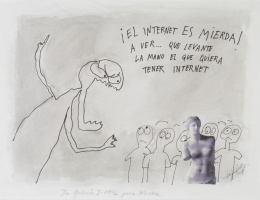 ¡EL INTERNET ES MIERDA!
A VER... QUE LEVANTE
LA MANO EL QUE QUIERA
TENER INTERNET